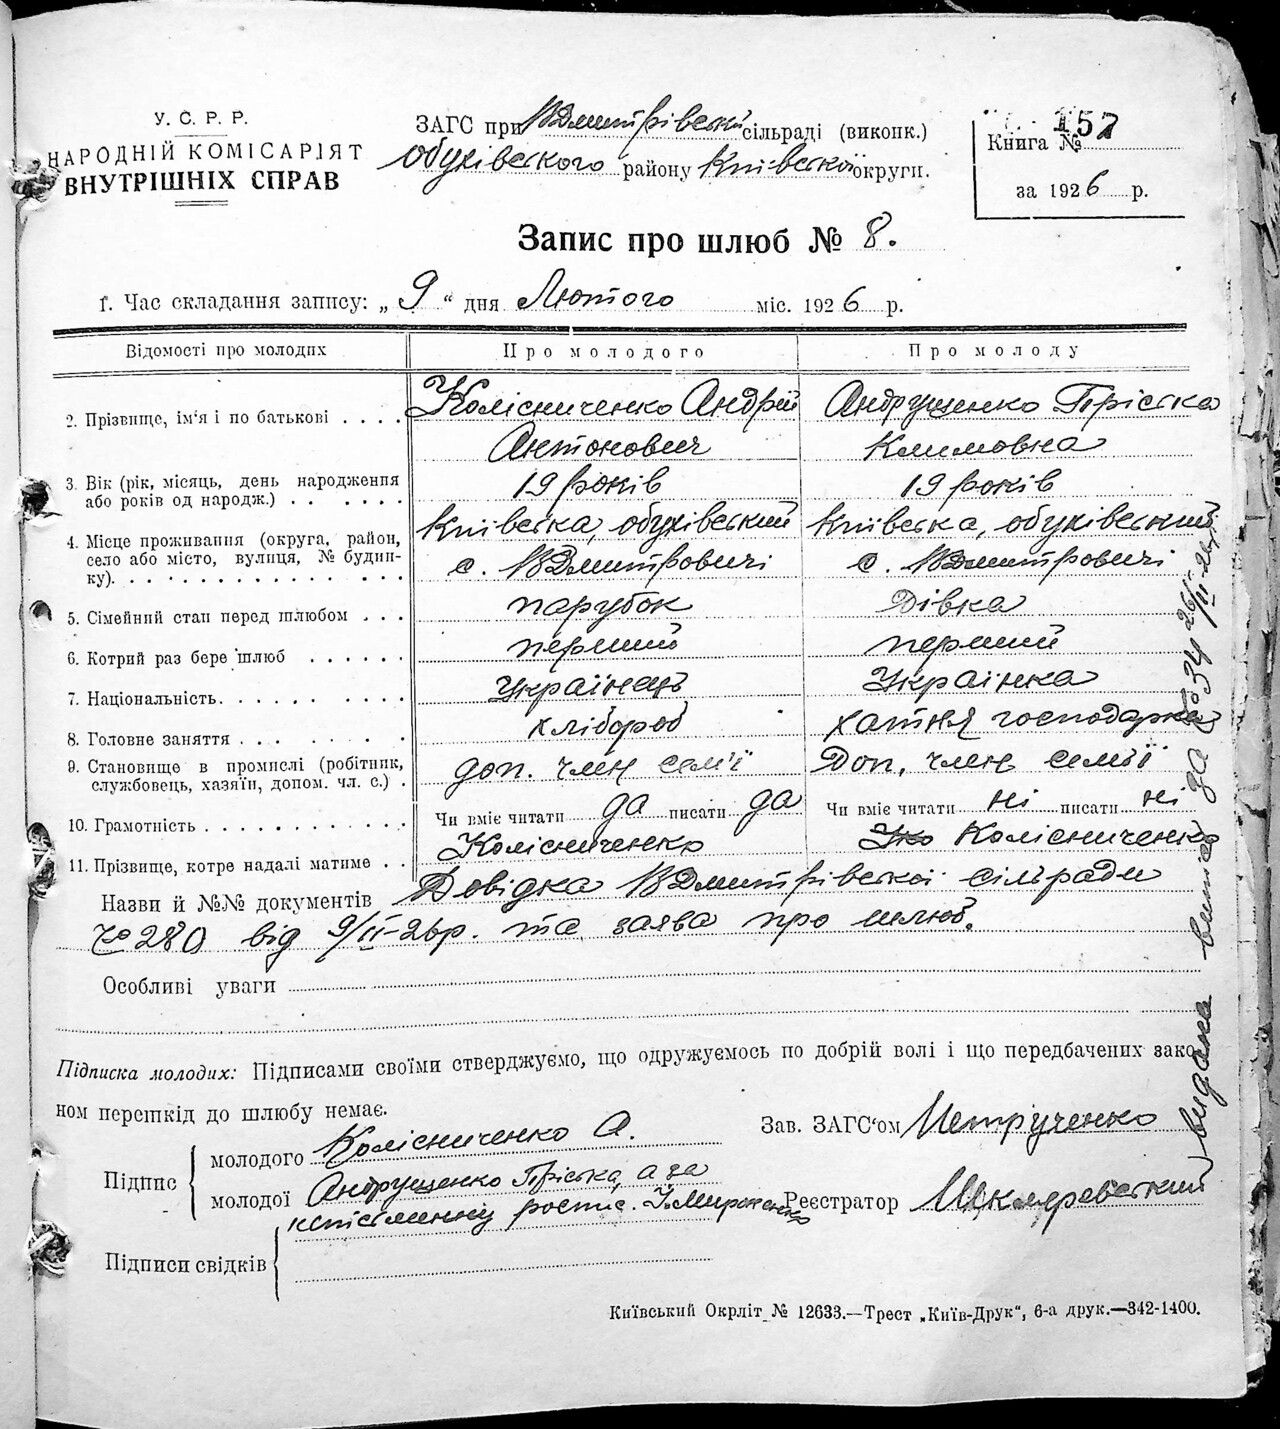 У. С. Р. Р.
НАРОДНІЙ КОМІСАРІЯТ
ВНУТРІШНІХ СПРАВ
ЗАГС при ВДмитрівській сільраді (виконк.)
Обухівського району Київської округи.
Книга № 157
за 1926 р.
Запис про шлюб № 8.
1. Час складання запису: „ 9 “ дня Лютого міс. 1926 р.
Відомості про молодих Про молодого Про молоду
2. Прізвище, ім'я і по батькові . . . . Колісниченко Андрій Андрущенко Пріська
Антонович Климовна
3. Вік (рік, місяць, день народження
або років од народж.) . . . . . . 19 років 19 років
Київська, обухівський Київська, обухівський
4. Місце проживання (округа, район,
село або місто, вулиця, № будин-
ку). с. ВДмитровичі с. ВДмитровичі
5. Сімейний стан перед шлюбом . . . парубок Дівка
6. Котрий раз бере шлюб . . . . . . перший перший
7. Національність. Українець Українка
8. Головне заняття . . . хлібороб хатня господарка
9. Становище в промислі (робітник,
службовець, хазяїн, допом. чл. с.) . доп. член сем'ї Доп. член сем'ї
10. Грамотність Чи вміє читати да писати да Чи вміє читати ні писати ні
11. Прізвище, котре надалі матиме . . Колісниченко Колісниченко
Назви й №№ документів Довідка ВДмитрівської сільради
№ 280 від 9/II-26р. та заява про шлюб.
Особливі уваги
Підписка молодих: Підписами своїми стверджуємо, що одружуємось по добрій волі і що передбачених зако-
ном перешкід до шлюбу немає.
Зав. ЗАГС'ом Петрученко
Підпис
молодого Колісниченко А.
молодої Андрущенко Пріська, а за
неписьменну роспис.
Реєстратор
Підписи свідків
видана виписка за № 34
Київський Окрліт № 12633.—Трест „Київ-Друк“, 6-а друк.—342-1400.